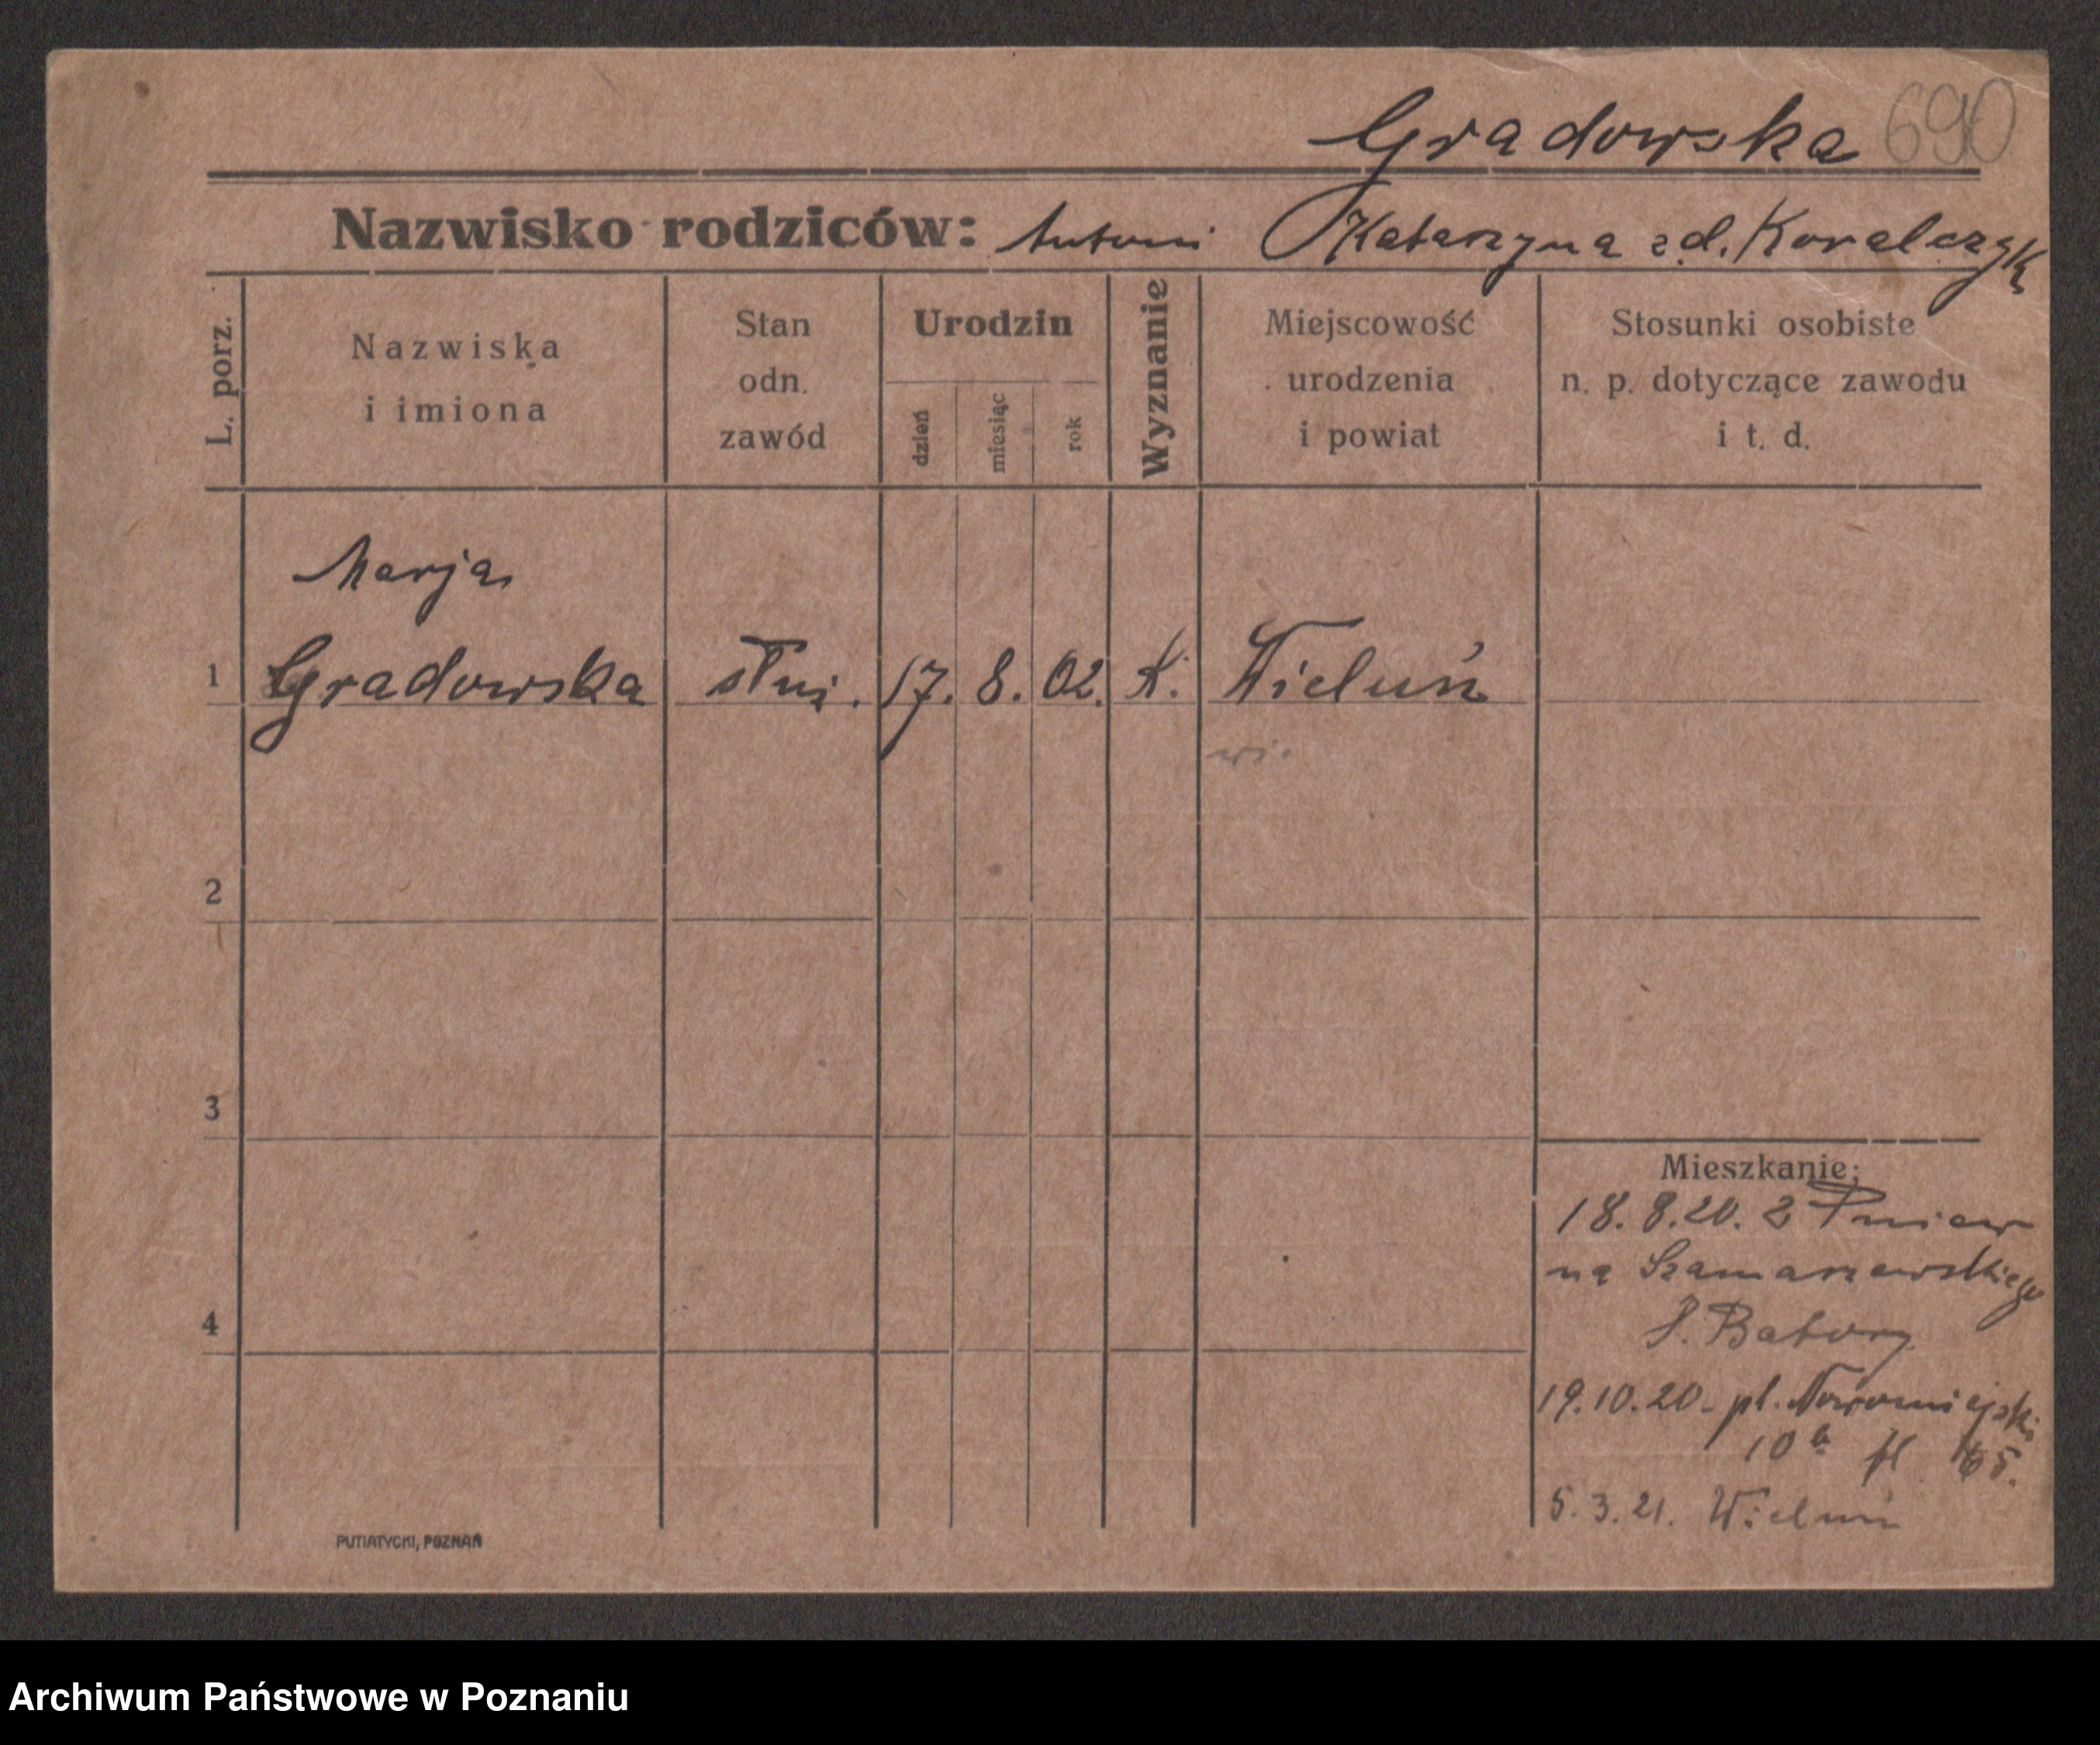 Gradowska 690
Nazwisko rodziców: Antoni Katarzyna z d. Kowalczyk
L. porz.
Nazwiska
i imiona
Stan
odn.
zawód
Urodzin
dzień
miesiąc
rok
Wyznanie
Miejscowość
urodzenia
i powiat
Stosunki osobiste
n. p. dotyczące zawodu
i t. d.
Marja
1 Gradowska służ. 17. 8. 02. K. Wieluń
wi.
2
3
4
Mieszkanie:
18.8.20. z Pniew
na Szamarzewskiego
J. Batory
19.10.20 - pl. Nowomiejski
10a
5.3.21. Wieluń
PUTIATYCKI, POZNAŃ
Archiwum Państwowe w Poznaniu